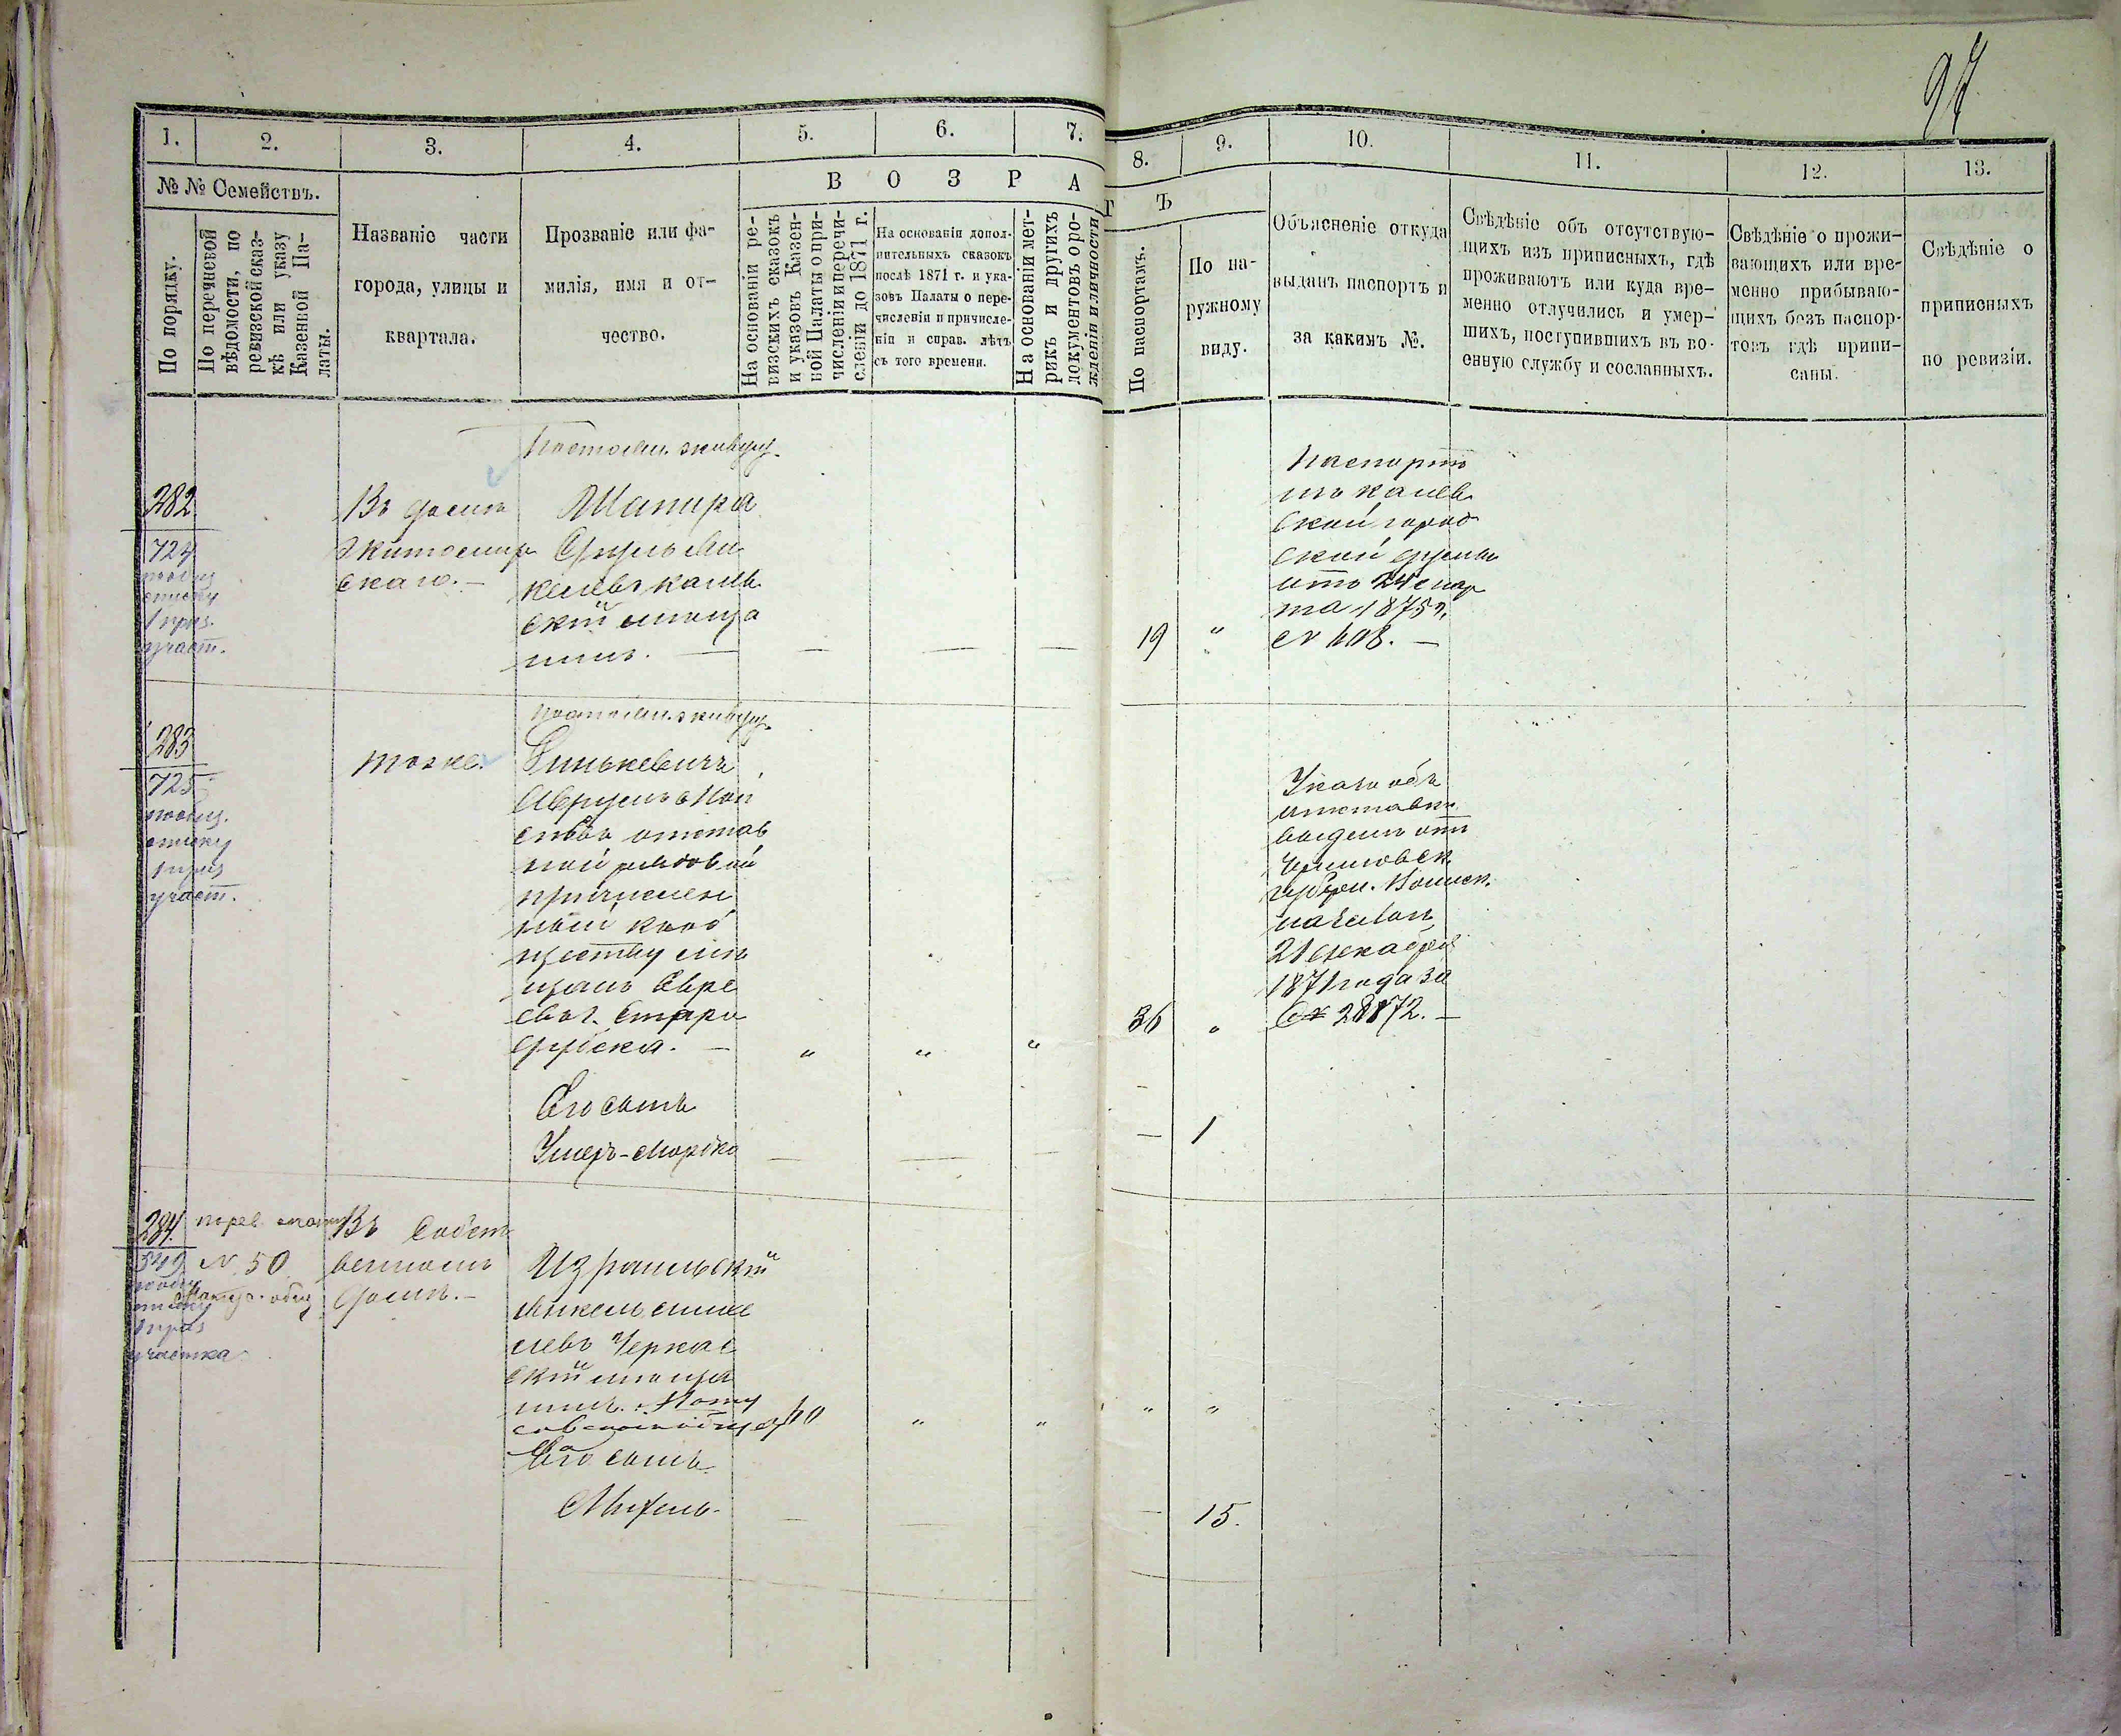 97
1.
2.
3.
4.
5.
6.
7.
8.
9.
10.
11.
12.
13.
№ № Семействъ.
По порядку.
По перечневой
вѣдомости, по
ревизской сказ-
кѣ или указу
Казенной Па-
латы.
Названіе части
города, улицы и
квартала.
Прозваніе или фа-
милія, имя и от-
чество.
В О З Р А
Т Ъ
На основаніи ре-
визскихъ сказокъ
и указовъ Казен-
ной Палаты о при-
численіи и перечи-
сленіи до 1871 г.
На основаніи допол-
нительныхъ сказокъ
послѣ 1871 г. и ука-
зовъ Палаты о пере-
численіи и причисле-
ніи и справ. лѣтъ
съ того времени.
На основаніи мет-
рикъ и другихъ
документовъ о ро-
жденіи и личности
По паспортамъ.
По на-
ружному
виду.
Объясненіе откуда
выданъ паспортъ и
за какимъ №.
Свѣдѣніе объ отсутствую-
щихъ изъ приписныхъ, гдѣ
проживаютъ или куда вре-
менно отлучились и умер-
шихъ, поступившихъ въ во-
енную службу и сосланныхъ.
Свѣдѣніе о прожи-
вающихъ или вре-
менно прибываю-
щихъ безъ паспор-
товъ гдѣ припи-
саны.
Свѣдѣніе о
приписныхъ
по ревизіи.
282
724
по общ
списку
1 приз.
участ.
Въ домѣ
Житомир
скаго. —
Постоян. живущ.
Шапира
каневъ
скій мѣща
нинъ. —
19
"
Паспортъ
изъ канев
ской город
ской думы
отъ 24 мар
та 1875 г.
№ 408. —
283
725
по общ.
списку
1 приз
участ.
тоже.
Постоян. живущ.
Линькевичъ
отстав
ной рядовой
причислен
ный къ об
ществу мѣ
щанъ Евре
евъ г. Старо
дуба. —
"
"
"
36
"
Указъ объ
отставкѣ
выданъ отъ
губерн. Воинск.
началь.
21 декабря
1871 года за
№ 28872. —
Его сынъ
Умеръ-Мордко
—
1
284.
349
по общ
списку
1 приз
участка
№ 50
Въ собст
венномъ
домѣ. —
Израильскій
Янкель
левъ Черкас
скій мѣща
нинъ.
60
"
"
"
"
Его сынъ
—
15.